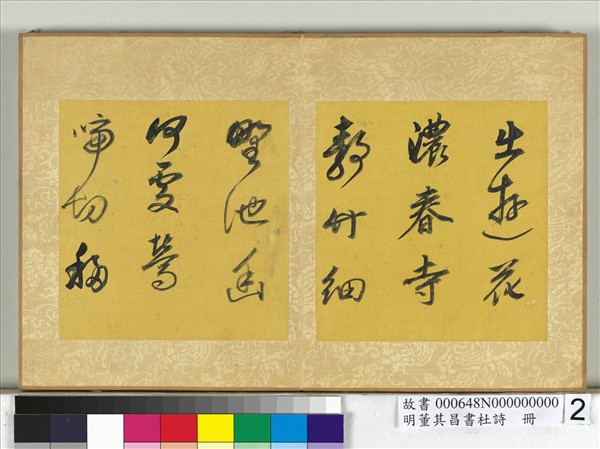 出遊花
濃春寺
靜竹細
野池幽
何處鶯
啼切移
故書 000648N000000000
明董其昌書杜詩　冊
2